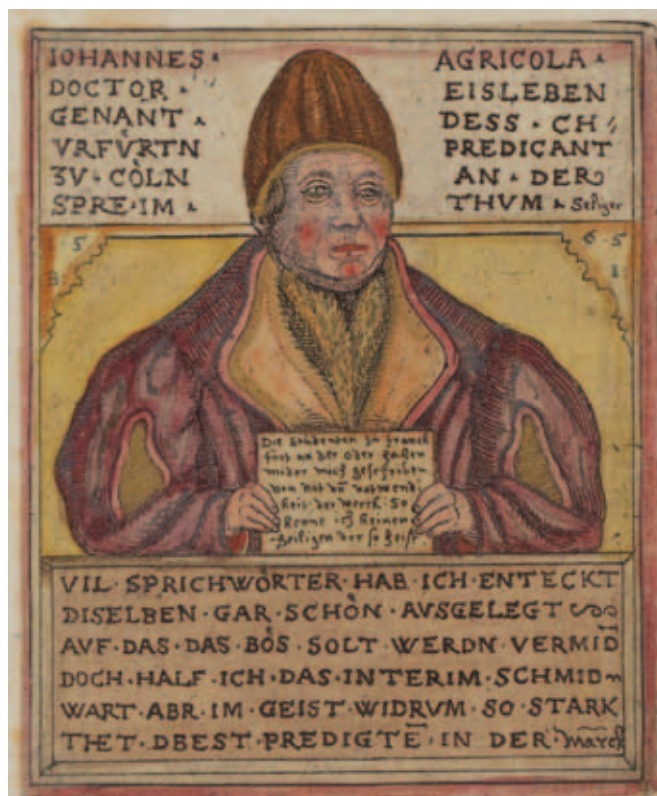 IOHANNES · AGRICOLA ·
DOCTOR · EISLEBEN
GENANT · DESS · CH
VRFVRTN PREDICANT
ZV · CÖLN AN · DER
SPRE · IM · THVM · Seliger
5 6 · 5
Die Studenten zu franck
furt an der Oder haben
wider mich geschrieben
von not vñ notwend
keit der werck · So
kenne ich keinen
Heiligen der so heist
VIL · SPRICHWÖRTER · HAB · ICH · ENTECKT
DISELBEN · GAR · SCHÖN · AVSGELEGT
AVF · DAS · DAS · BÖS · SOLT · WERDN · VERMID
DOCH · HALF · ICH · DAS · INTERIM · SCHMIDn
WART · ABR · IM · GEIST · WIDRVM · SO · STARK
THET · DBEST · PREDIGTE̅ · IN · DER · Marck